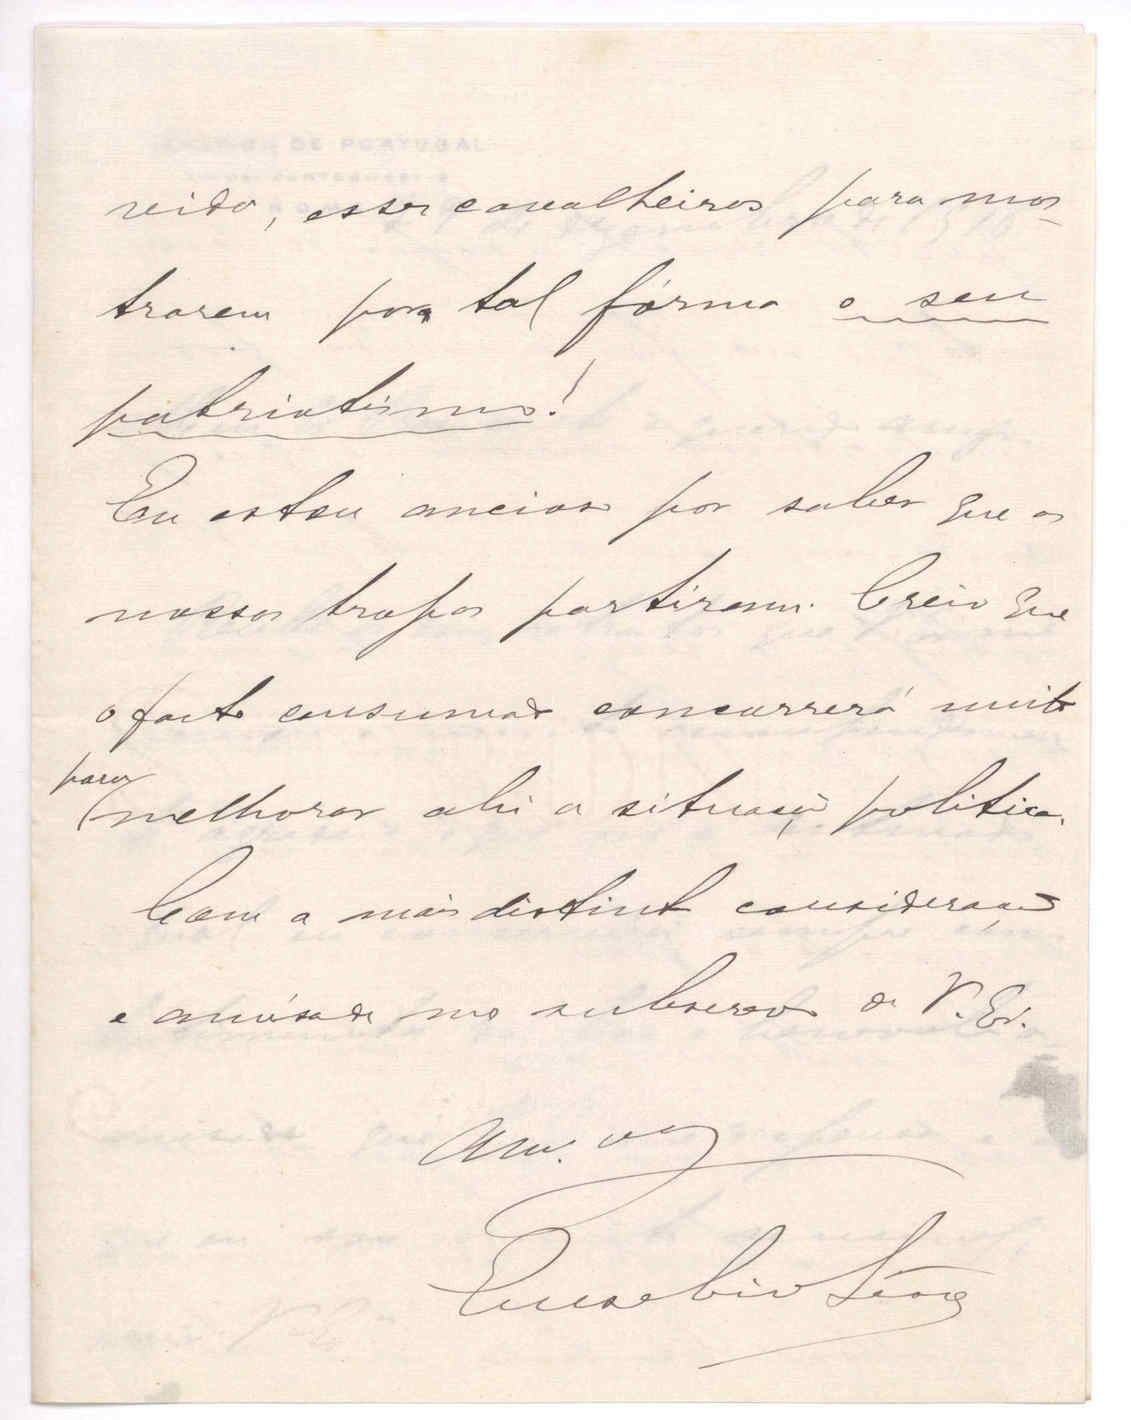 reido, esses cavalheiros para mos-
trarem por tal fórma o seu
patriotismo!
Eu estou ancioso por saber que as
nossas tropas partiram. Creio que
o facto consumado concorrerá muito
para
melhorar ahi a situação politica.
Com a mais distincta consideração
e amisade me subscrevo de V. Ex.
Am.
Eusebio Leão